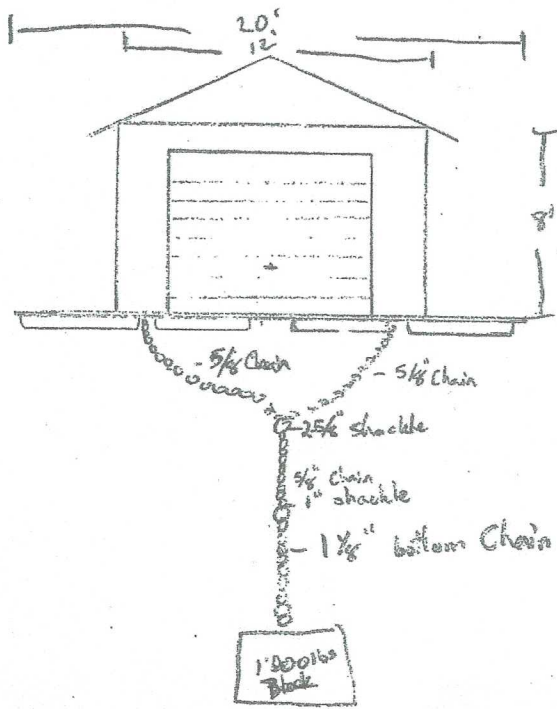 20'
12'
8'
5/8 Chain
5/8" Chain
25/8" shackle
5/8" Chain
1" shackle
1 1/8" bottom Chain
lbs
Block